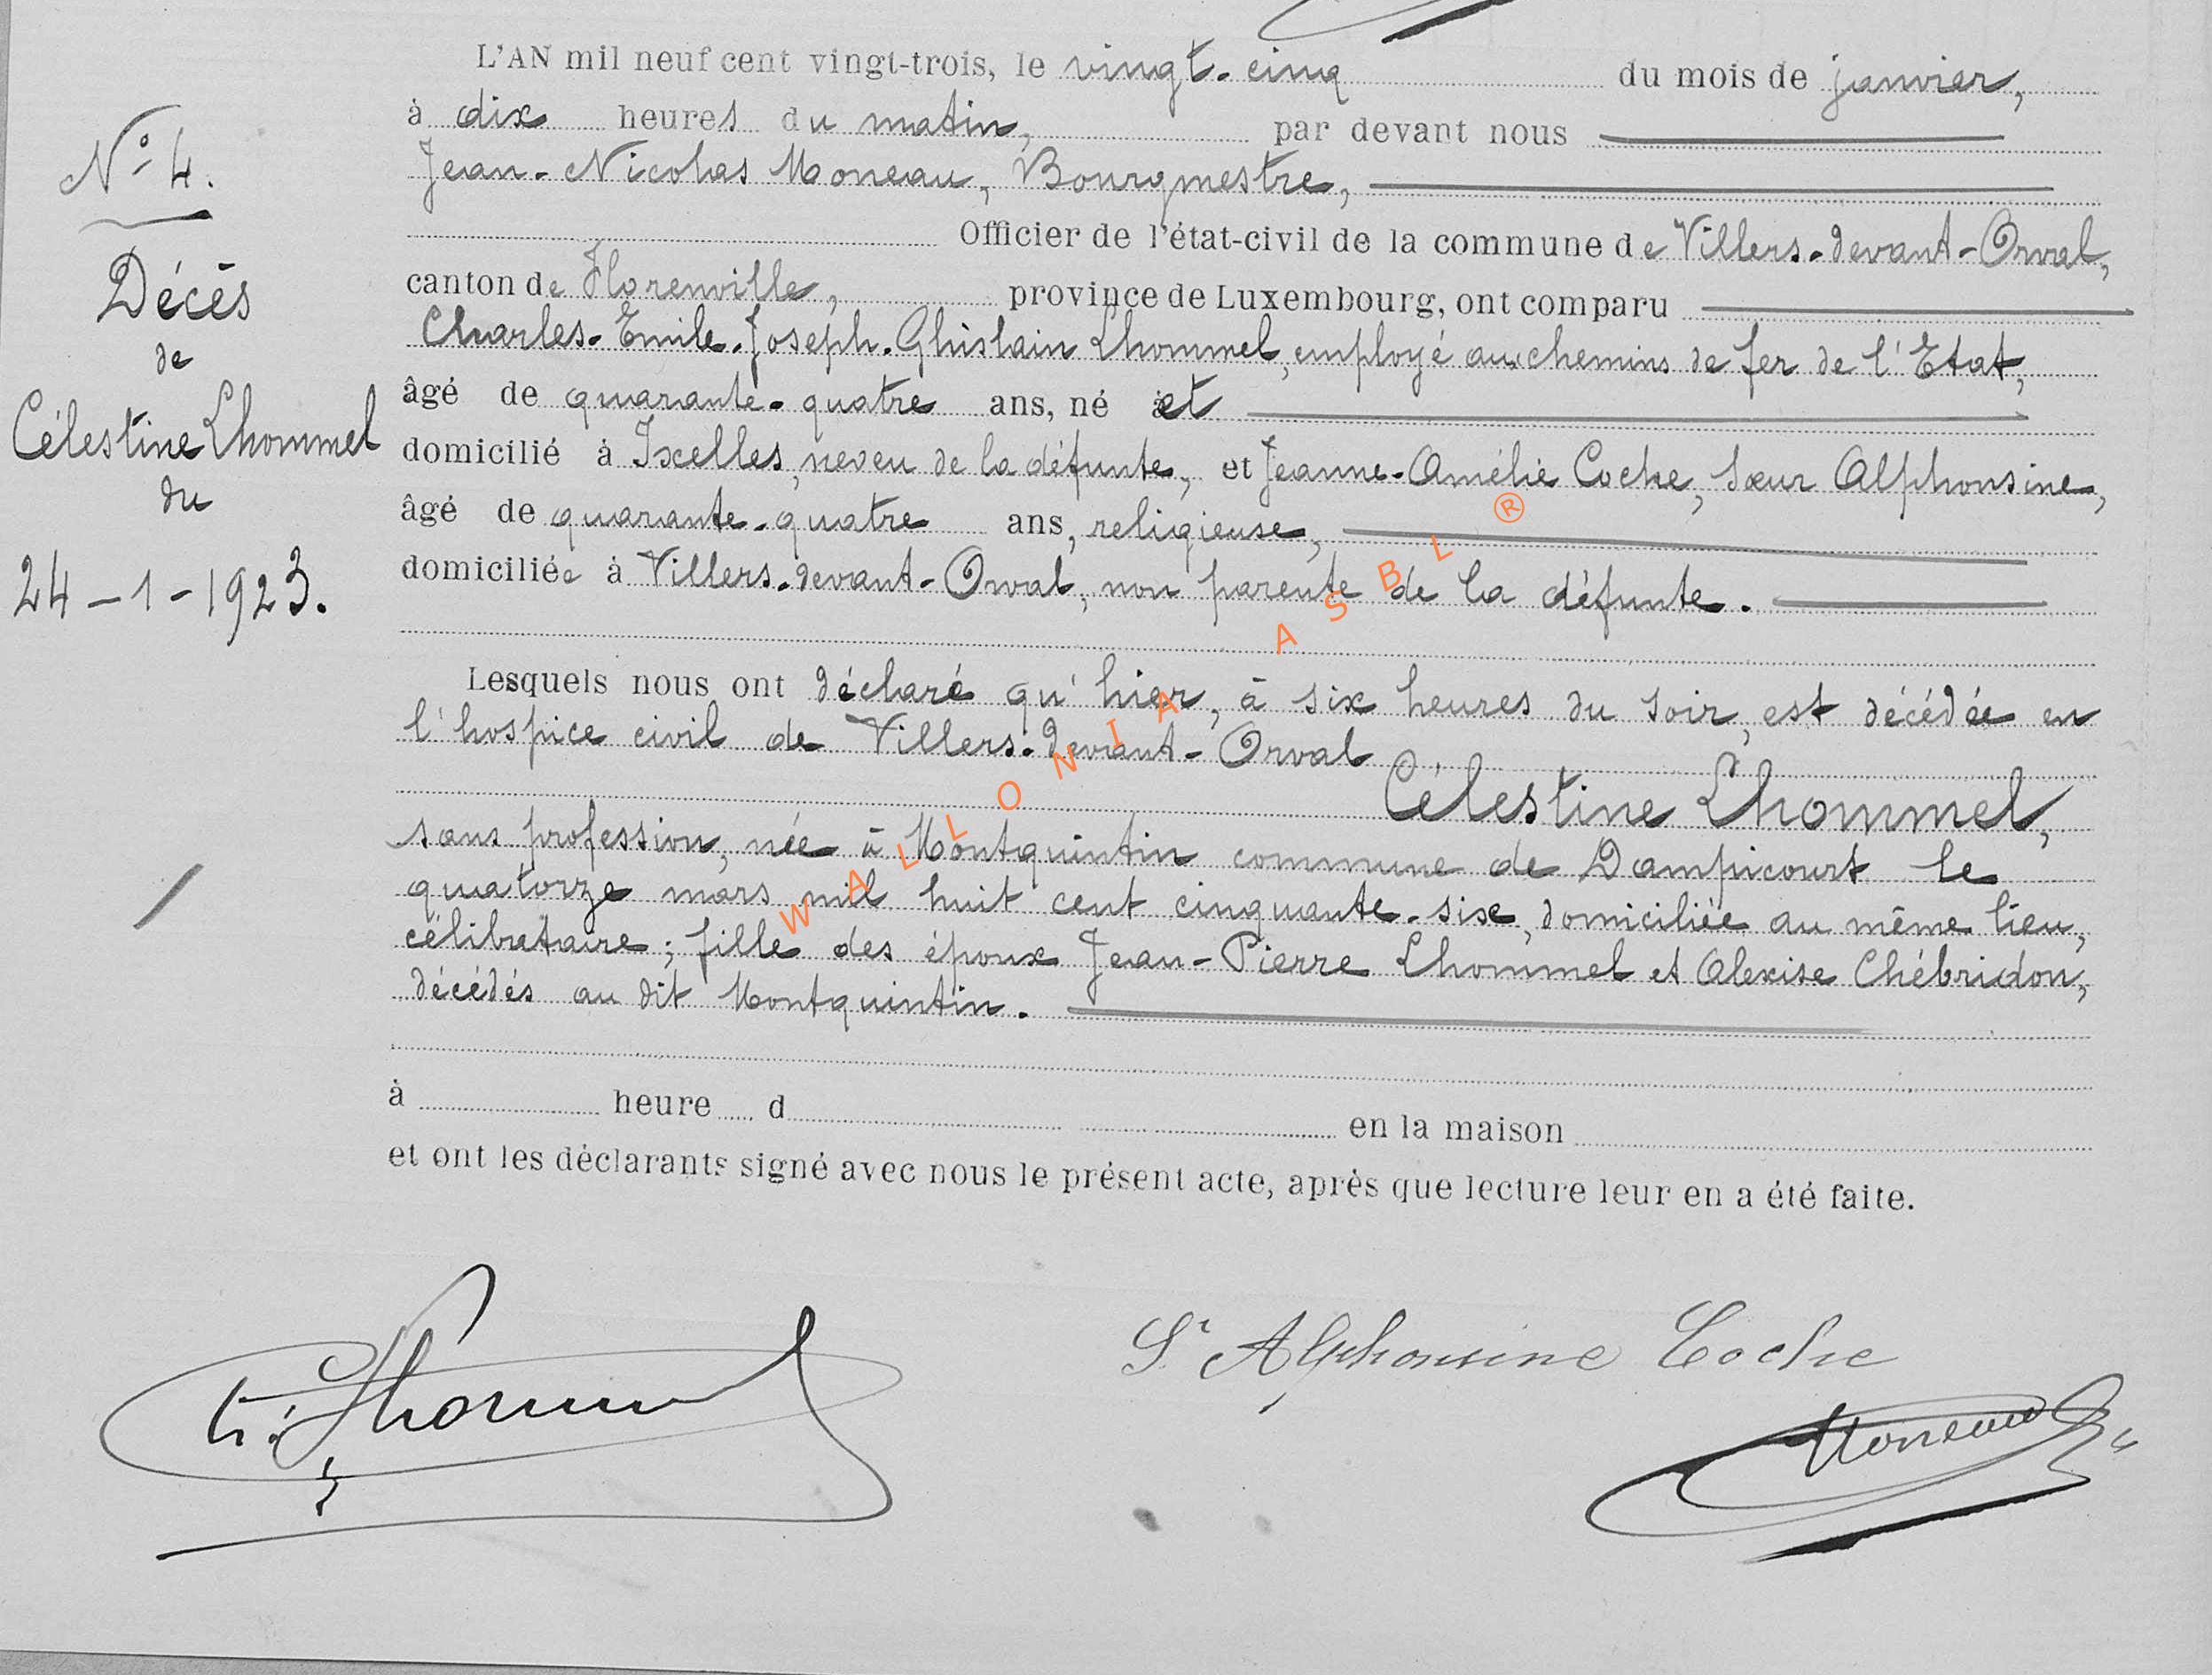 L'AN mil neuf cent vingt-trois, le vingt-cinq du mois de janvier,
à dix heures du matin, par devant nous
Jean-Nicolas Moneau, Bourgmestre,
Officier de l'état-civil de la commune de Villers-devant-Orval,
canton de Florenville, province de Luxembourg, ont comparu
Charles-Emile-Joseph-Ghislain Lhommel, employé aux chemins de fer de l'Etat,
âgé de quarante-quatre ans, né et
domicilié à Ixelles, neveu de la défunte, et Jeanne-Amélie Coche, Sœur Alphonsine,
âgé de quarante-quatre ans, religieuse,
domiciliée à Villers-devant-Orval, non parente de la défunte.
Lesquels nous ont déclaré qu'hier, à six heures du soir, est décédée en
l'hospice civil de Villers-devant-Orval
Célestine Lhommel,
sans profession, née à Montquintin commune de Dampicourt le
quatorze mars mil huit cent cinquante-six, domiciliée au même lieu,
célibataire; fille des époux Jean-Pierre Lhommel et Alexise Chébridon,
décédés au dit Montquintin.
à heure d en la maison
et ont les déclarants signé avec nous le présent acte, après que lecture leur en a été faite.
N° 4.
Décès
de
Célestine Lhommel
du
24-1-1923.
Lhommel
Sr Alphonsine Coche
Moneau
WALLONIA ASBL ®